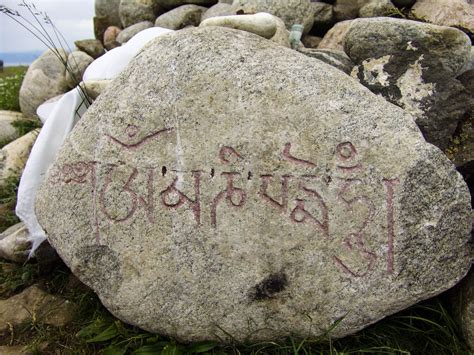 ༄༅། ཨོཾ་མ་ཎི་པདྨེ་ཧཱུྃ།